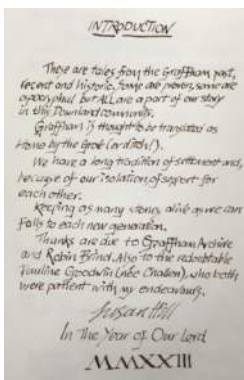 INTRODUCTION
These are tales from the Graffham past,
recent and historic. Some are proven, some are
apocryphal but ALL are a part of our story
in this Downland community.
Graffham is thought to be translated as
Home by the Grove (or ditch!).
We have a long tradition of settlement and,
because of our isolation, of support for
each other.
Keeping as many stories alive as we can
falls to each new generation.
Thanks are due to Graffham Archive
and Robin Brind. Also to the redoubtable
Pauline Goodwin (née), who both
were patient with my endeavours.
Susan Hill
In The Year of Our Lord
MMXXIII